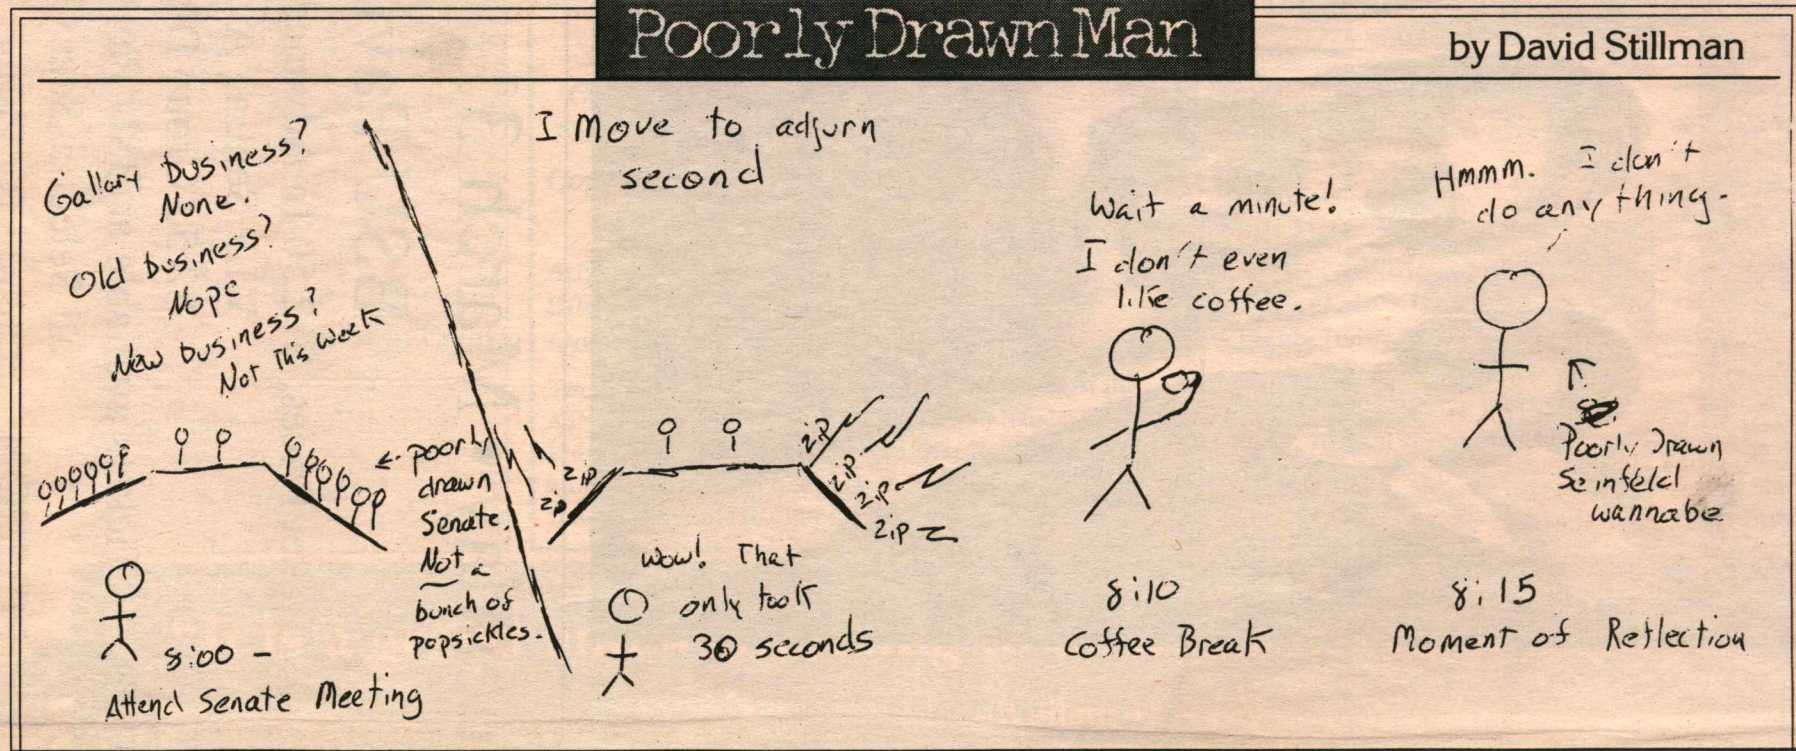 Poorly Drawn Man
by David Stillman
Gallary business?
None.
Old business?
Nope
New business?
Not This week
← poorly
drawn
Senate.
Not a
bunch of
popsickles.
8:00 -
Attend Senate Meeting
I move to adjurn
second
zip
zip
zip
zip
zip
zip
Wow! That
only took
30 seconds
Wait a minute!
I don't even
like coffee.
8:10
Coffee Break
Hmmm. I don't
do any thing.
Poorly Drawn
Seinfeld
wannabe
8:15
Moment of Reflection